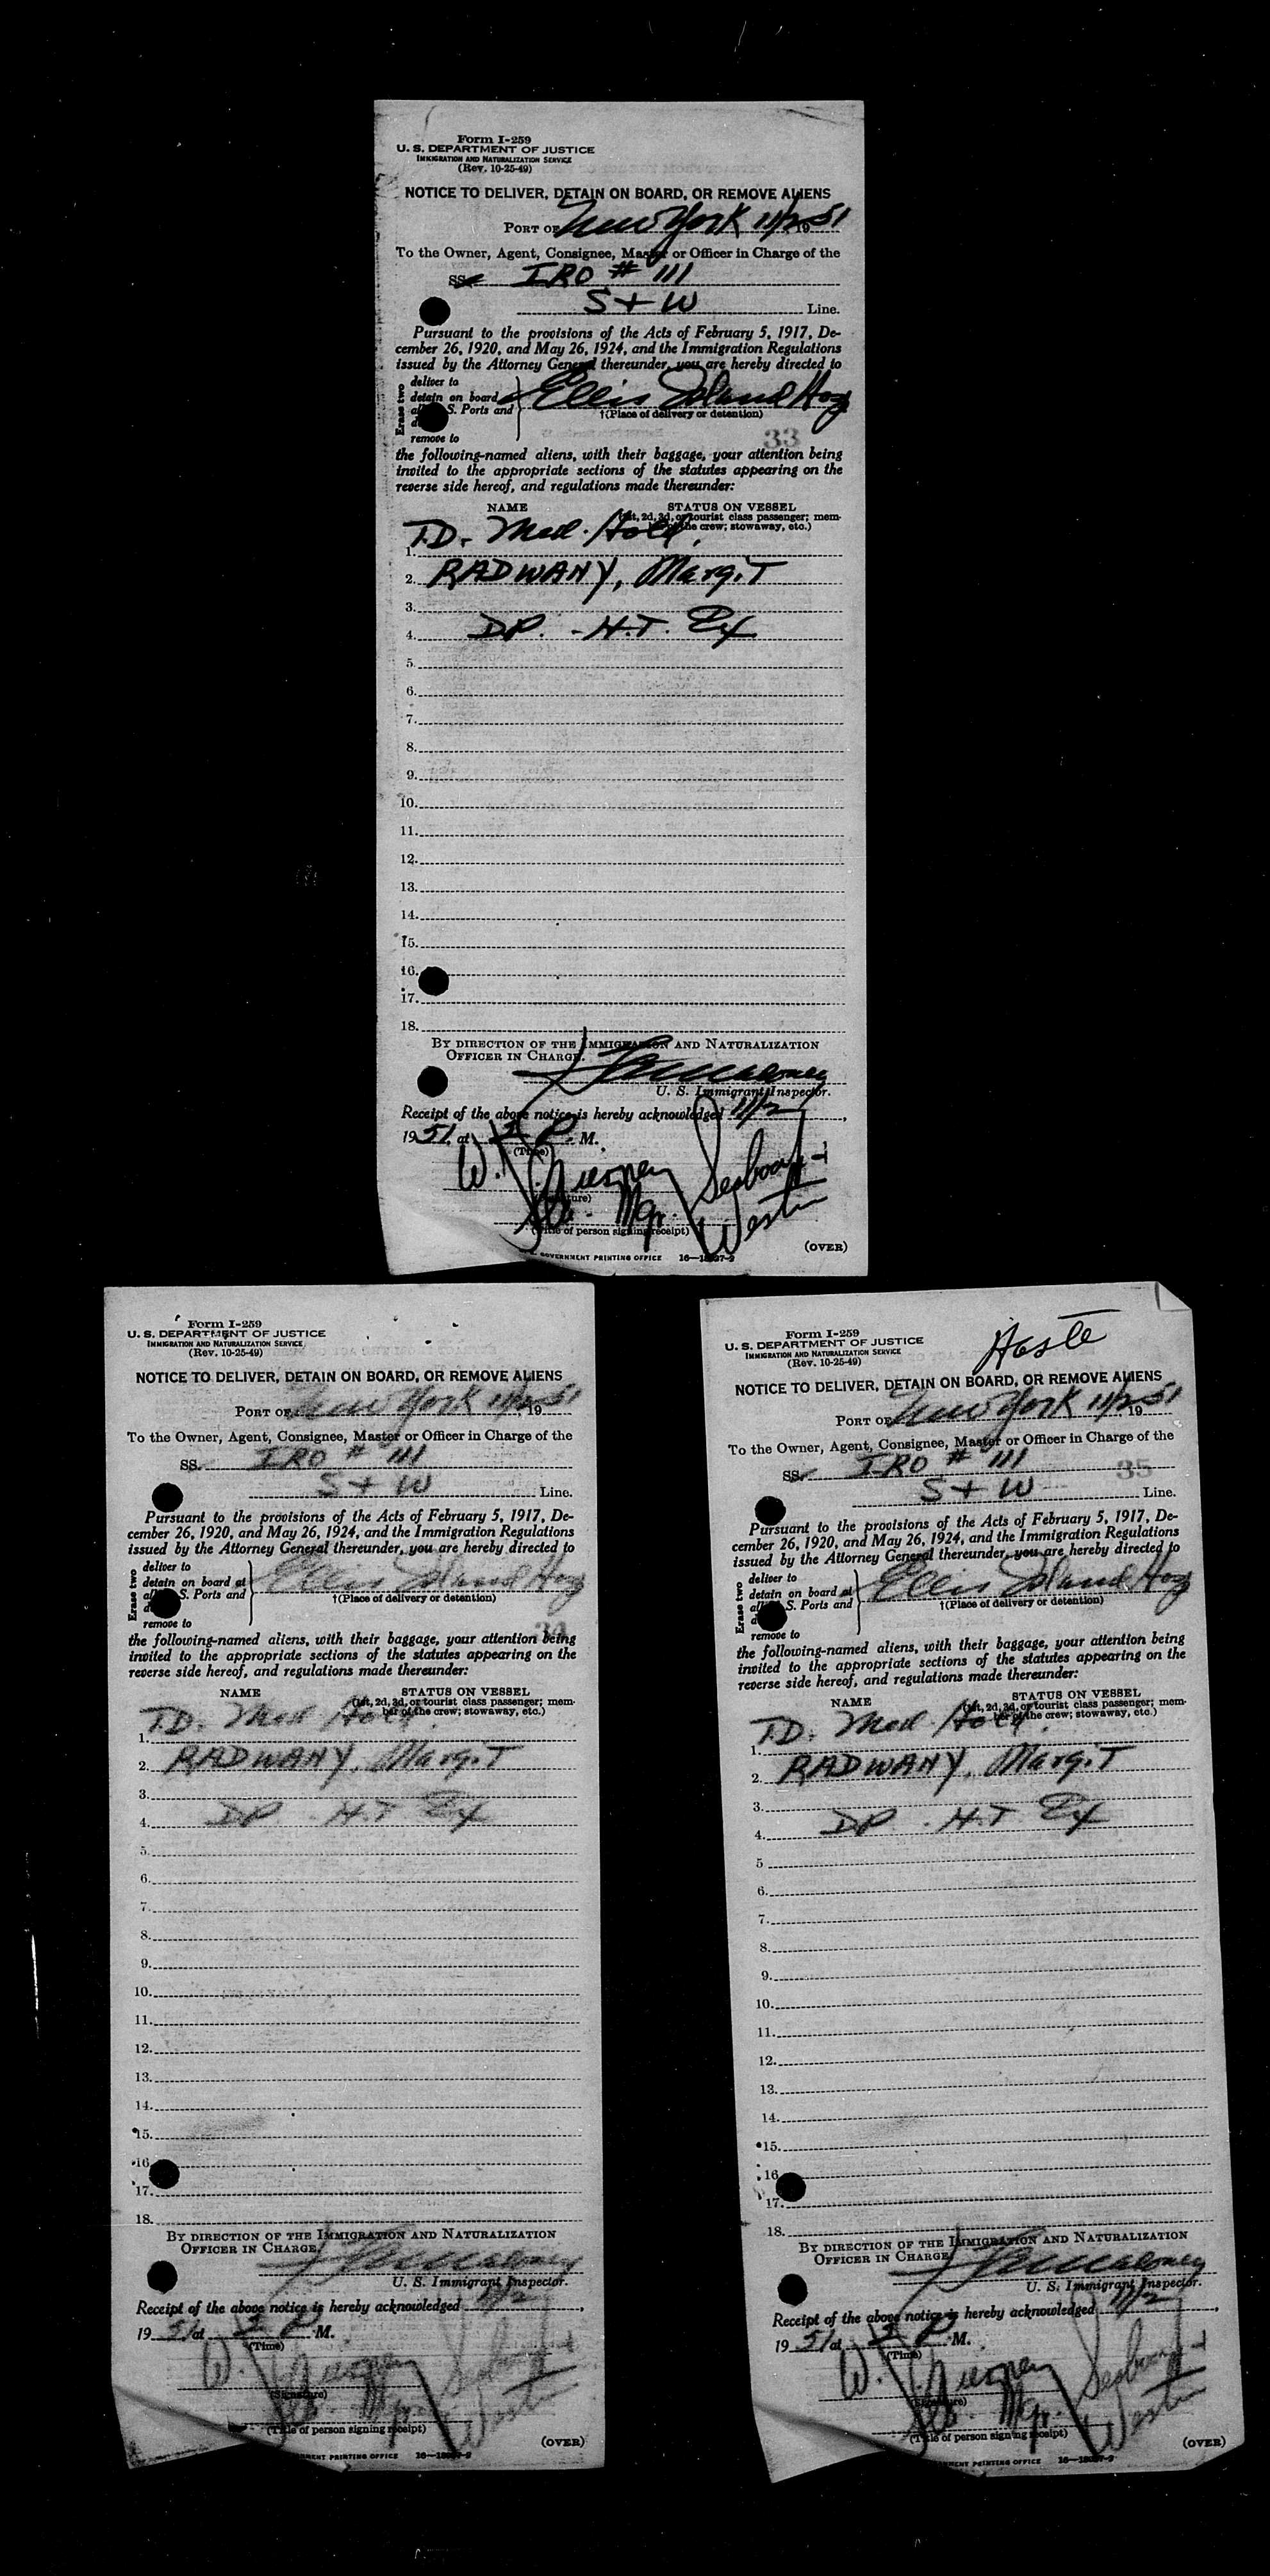 Form I-259
U. S. DEPARTMENT OF JUSTICE
IMMIGRATION AND NATURALIZATION SERVICE
(Rev. 10-25-49)
NOTICE TO DELIVER, DETAIN ON BOARD, OR REMOVE ALIENS
PORT OF New York 11/2 1951
To the Owner, Agent, Consignee, Master or Officer in Charge of the
SS. IRO # 111
S + W Line.
Pursuant to the provisions of the Acts of February 5, 1917, De-
cember 26, 1920, and May 26, 1924, and the Immigration Regulations
issued by the Attorney General thereunder, you are hereby directed to
Erase two
deliver to
detain on board
S. Ports and
remove to
Ellis Island
†(Place of delivery or detention)
33
the following-named aliens, with their baggage, your attention being
invited to the appropriate sections of the statutes appearing on the
reverse side hereof, and regulations made thereunder:
NAME STATUS ON VESSEL
(1st, 2d, 3d, or tourist class passenger; mem-
ber of the crew; stowaway, etc.)
1. T.D. Med. Hold.
2. RADWANY, Margit
3.
4. DP. - H.T. Ex
5.
6.
7.
8.
9.
10.
11.
12.
13.
14.
15.
16.
17.
18.
BY DIRECTION OF THE IMMIGRATION AND NATURALIZATION
OFFICER IN CHARGE.
U. S. Immigrant Inspector.
Receipt of the above notice is hereby acknowledged 11/2,
1951, at P. M.
(Time)
W. Seaboard +
(Signature)
Mgr. Western
(Title of person signing receipt)
(OVER)
GOVERNMENT PRINTING OFFICE
Form I-259
U. S. DEPARTMENT OF JUSTICE
IMMIGRATION AND NATURALIZATION SERVICE
(Rev. 10-25-49)
NOTICE TO DELIVER, DETAIN ON BOARD, OR REMOVE ALIENS
PORT OF New York 11/2 1951
To the Owner, Agent, Consignee, Master or Officer in Charge of the
SS. IRO # 111
S + W Line.
Pursuant to the provisions of the Acts of February 5, 1917, De-
cember 26, 1920, and May 26, 1924, and the Immigration Regulations
issued by the Attorney General thereunder, you are hereby directed to
Erase two
deliver to
detain on board at
S. Ports and
remove to
Ellis Island
†(Place of delivery or detention)
34
the following-named aliens, with their baggage, your attention being
invited to the appropriate sections of the statutes appearing on the
reverse side hereof, and regulations made thereunder:
NAME STATUS ON VESSEL
(1st, 2d, 3d, or tourist class passenger; mem-
ber of the crew; stowaway, etc.)
1. T.D. Med Hold
2. RADWANY, Margit
3.
4. DP - H.T Ex
5.
6.
7.
8.
9.
10.
11.
12.
13.
14.
15.
16.
17.
18.
BY DIRECTION OF THE IMMIGRATION AND NATURALIZATION
OFFICER IN CHARGE.
U. S. Immigrant Inspector.
Receipt of the above notice is hereby acknowledged 11/2,
1951 at P M.
(Time)
W. Seaboard +
(Signature)
Mgr. Western
(Title of person signing receipt)
(OVER)
PRINTING OFFICE
Form I-259
U. S. DEPARTMENT OF JUSTICE
IMMIGRATION AND NATURALIZATION SERVICE
(Rev. 10-25-49)
NOTICE TO DELIVER, DETAIN ON BOARD, OR REMOVE ALIENS
PORT OF New York 11/2 1951
To the Owner, Agent, Consignee, Master or Officer in Charge of the
SS. IRO # 111
35
S + W Line.
Pursuant to the provisions of the Acts of February 5, 1917, De-
cember 26, 1920, and May 26, 1924, and the Immigration Regulations
issued by the Attorney General thereunder, you are hereby directed to
Erase two
deliver to
detain on board at
S. Ports and
remove to
Ellis Island
†(Place of delivery or detention)
the following-named aliens, with their baggage, your attention being
invited to the appropriate sections of the statutes appearing on the
reverse side hereof, and regulations made thereunder:
NAME STATUS ON VESSEL
(1st, 2d, 3d, or tourist class passenger; mem-
ber of the crew; stowaway, etc.)
1. T.D. Med. Hold.
2. RADWANY, Margit
3.
4. DP - H.T Ex
5
6.
7.
8.
9.
10.
11.
12.
13.
14.
15.
16.
17.
18.
BY DIRECTION OF THE IMMIGRATION AND NATURALIZATION
OFFICER IN CHARGE
U. S. Immigrant Inspector.
Receipt of the above notice is hereby acknowledged 11/2,
1951 at P. M.
(Time)
W. Seaboard +
(Signature)
Mgr. Western
(Title of person signing receipt)
(OVER)
PRINTING OFFICE